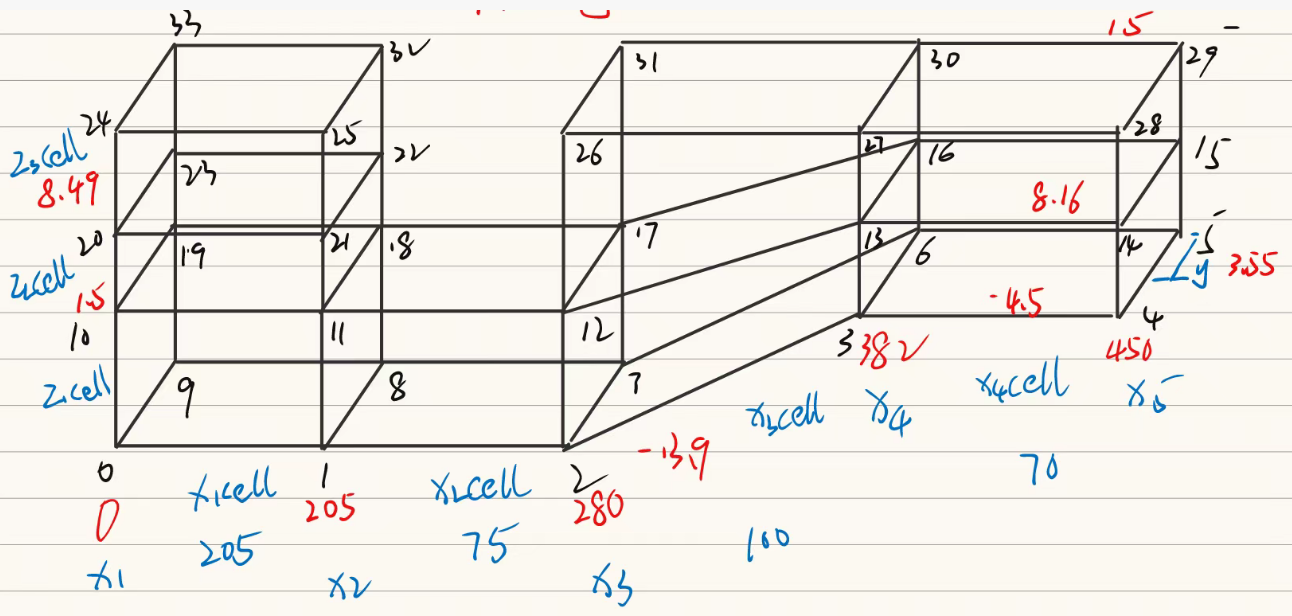 33 32 31 30 1.5 29
24 25 26 27 28
Z3cell 23 22 16 15
8.49 8.16
20 19 21 18 17 13 14 5
Z2cell 6 Ly 3.55
1.5 -4.5
10 11 12 3 382 4
450
Z1cell 9 8 7 x3cell x4 x4cell x5
-13.9
0 x1cell 1 x2cell 2 70
0 205 280
205 75 100
x1 x2 x3